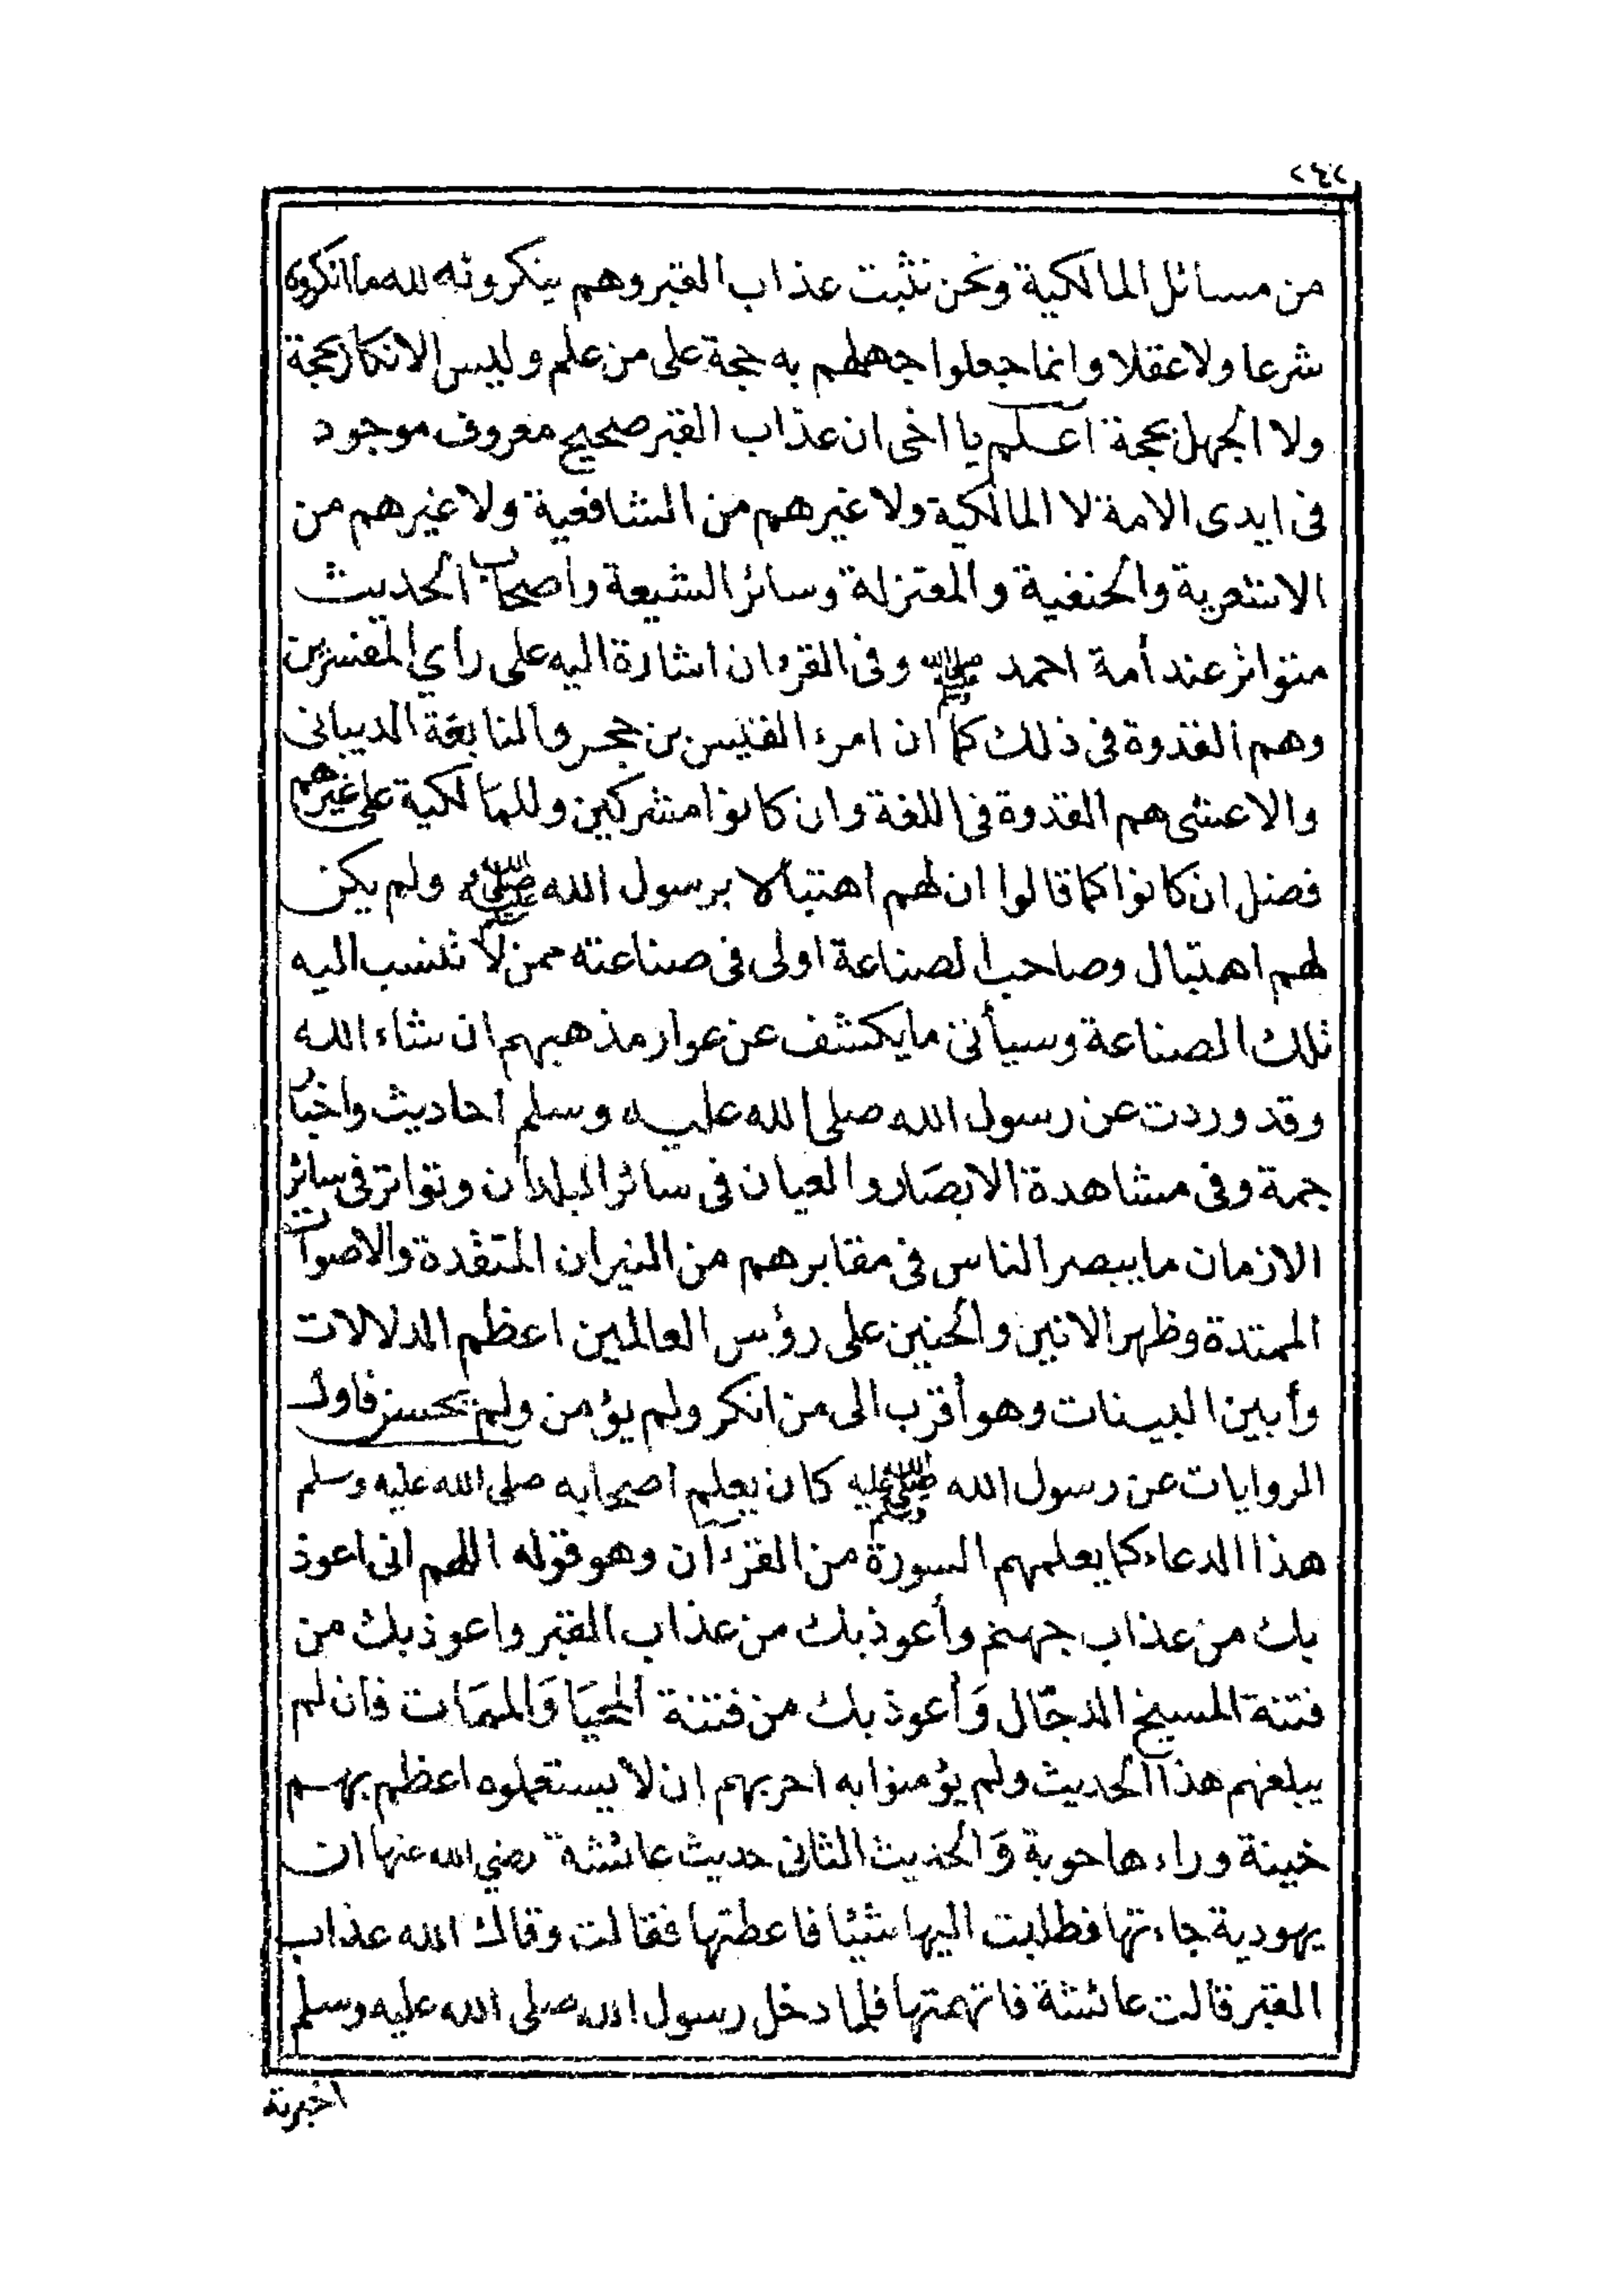 ٢٤٢
من مسائل المالكية ونحن نثبت عذاب القبر وهم ينكرونه لله ما انكروه
شرعا ولا عقلا وانما جعلوا جهلهم به حجة على من علم وليس الانكار بحجة
ولا الجهل بحجة اعلم يا اخى ان عذاب القبر صحيح معروف موجود
فى ايدى الامة لا المالكية ولا غيرهم من الشافعية ولا غيرهم من
الاشعرية والحنفية والمعتزلة وسائر الشيعة واصحاب الحديث
متواتر عند أمة احمد ﷺ وفى القرءان اشارة اليه على رأي المفسرين
وهم القدوة فى ذلك كما ان امرء القيس بن حجر والنابغة الديبانى
والاعشى هم القدوة فى اللغة وان كانوا مشركين وللمالكية على غيرهم
فضل ان كانوا كما قالوا ان لهم اهتبالا برسول الله ﷺ ولم يكن
لهم اهتبال وصاحب الصناعة اولى فى صناعته ممن لا تنسب اليه
تلك الصناعة وسيأتى ما يكشف عن عوار مذهبهم ان شاء الله
وقد وردت عن رسول الله صلى الله عليه وسلم احاديث واخبار
جمة وفى مشاهدة الابصَار والعيان فى سائر البلدان وتواتر فى سائر
الازمان ما يبصر الناس فى مقابرهم من النيران المتقدة والاصوات
الممتدة وظهر الانين والحنين على رؤس العالمين اعظم الدلالات
وأبين البينات وهو أقرب الى من انكر ولم يؤمن ولم يحسن فاول
الروايات عن رسول الله ﷺ كان يعلم اصحابه صلى الله عليه وسلم
هذا الدعاء كما يعلمهم السورة من القرءان وهو قوله اللهم انى اعوذ
بك من عذاب جهنم وأعوذ بك من عذاب القبر واعوذ بك من
فتنة المسيح الدجّال وَأعوذ بك من فتنة المحيَا وَالممَات فان لم
يبلغهم هذا الحديث ولم يؤمنوا به احر بهم ان لا يستعملوه اعظم بهم
خيبة وراءها حوبة وَالحديث الثانى حديث عائشة رضي الله عنها ان
يهودية جاءتها فطلبت اليها شيئا فاعطتها فقالت وقاك الله عذاب
القبر قالت عائشة فاتهمتها فلما دخل رسول الله صلى الله عليه وسلم
اخبرته